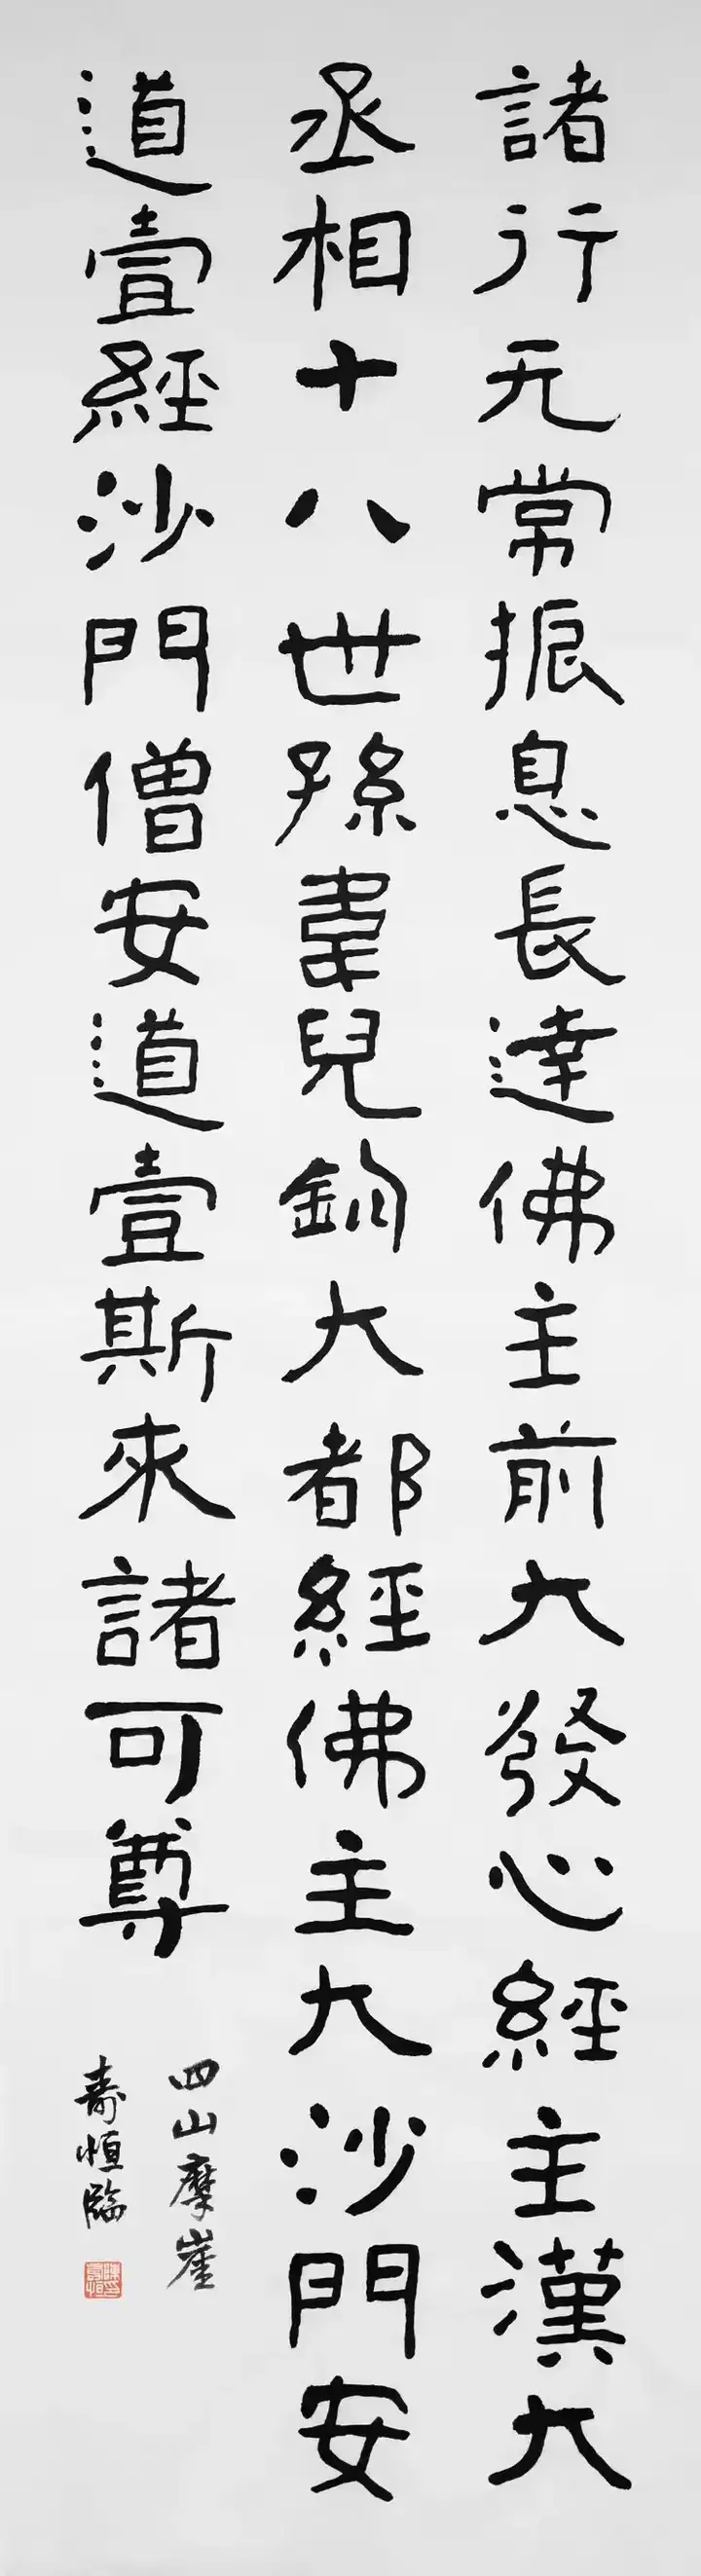 諸行无常振息長達佛主前大發心經主漢大
丞相十八世孫韋兒釗大都經佛主大沙門安
道壹經沙門僧安道壹斯來諸可尊
四山摩崖
壽恒臨